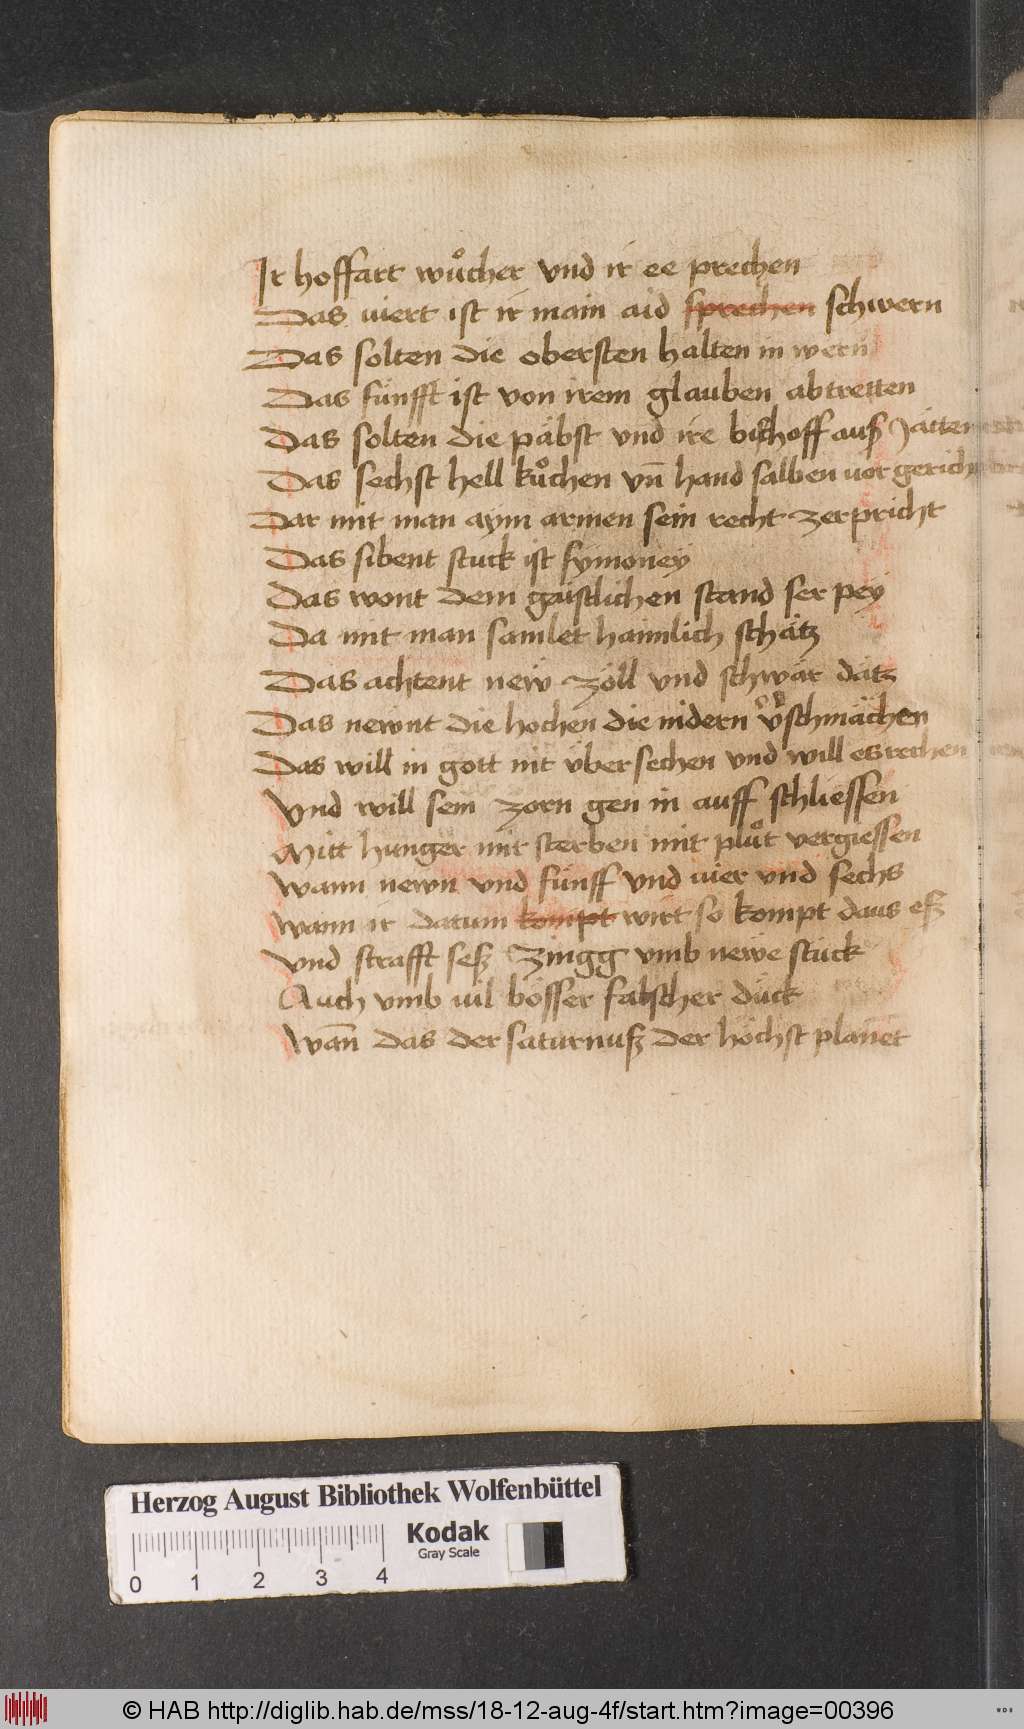 Ir hoffart wůcher vnd ir ee prechen
Das viert ist ir main aid sprechen schwern
Das solten die obersten halten in wern
Das fünfft ist von irem glauben abtretten
Das solten die päbst vnd ire bischoff auß Jätten
Das sechst hell kůchen vn̄ hand salben vor gericht
Dar mit man aynn armen sein recht zerpricht
Das sibent stuck ist symoney
Das wont dem gaistlichen stand ser pey
Da mit man samlet haimlich schätz
Das achtent new zöll vnd schwär dätz
Das newnt die hochen die nidern v̾schmächen
Das will in gott nit übersechen vnd will es rechen
Vnd will sein zorn gen in auff schliessen
Mitt hunger mit sterben mit plůt vergiessen
Wann newn vnd fünff vnd vier vnd sechs
Wann ir datum kompt wirt so kompt daus eß
Vnd strafft seß Zingg vmb newe stück
Auch vmb vil bösser falscher dück
Wan̄ das der saturnuß der höchst planet
Herzog August Bibliothek Wolfenbüttel
Kodak
Gray Scale
0 1 2 3 4
© HAB http://diglib.hab.de/mss/18-12-aug-4f/start.htm?image=00396